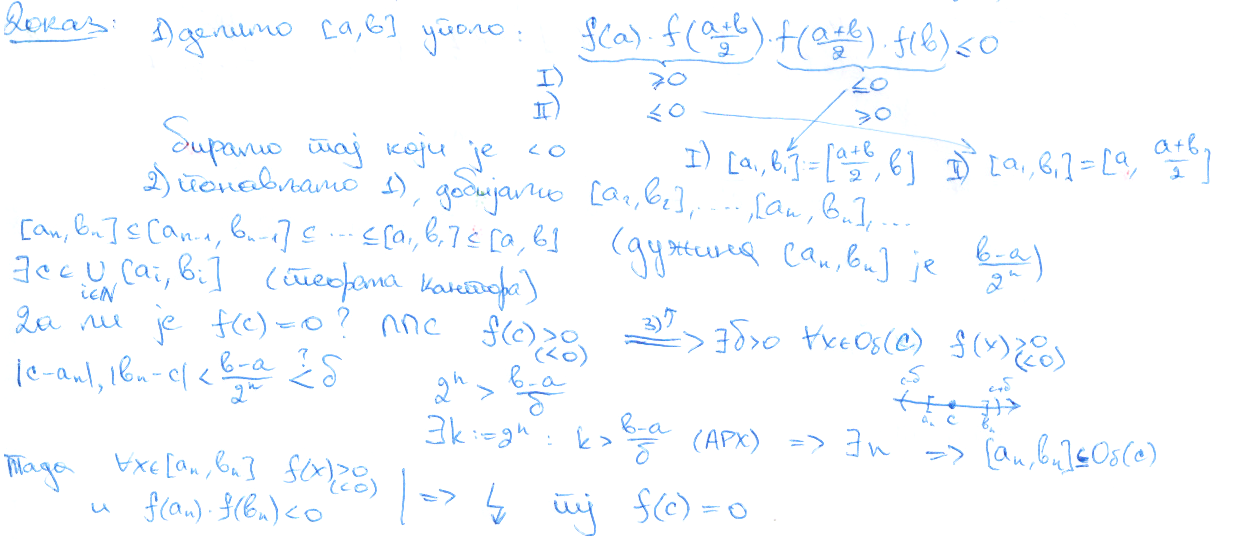 Доказ: 1) делимо [a,b] уполо: f(a)·f((a+b)/2)·f((a+b)/2)·f(b) ≤ 0
I) ≥0 ≤0
II) ≤0 ≥0
бирамо тај који је <0 I) [a₁,b₁]=[(a+b)/2, b] II) [a₁,b₁]=[a, (a+b)/2]
2) понављамо 1), добијамо [a₂,b₂],....,[aₙ,bₙ],...
[aₙ,bₙ]⊆[aₙ₋₁,bₙ₋₁]⊆...⊆[a₁,b₁]⊆[a,b] (дужина [aₙ,bₙ] је (b-a)/2ⁿ)
∃c∈∪_{i∈N}[aᵢ,bᵢ] (теорема Кантора)
Да ли је f(c)=0? ППС f(c)>0 (<0) ⟹ 3)Т ∃δ>0 ∀x∈Oδ(c) f(x)>0 (<0)
|c-aₙ|,|bₙ-c| < (b-a)/2ⁿ <? δ 2ⁿ > (b-a)/δ c-δ c+δ
aₙ c bₙ
∃k:=2ⁿ: k > (b-a)/δ (АРХ) => ∃n => [aₙ,bₙ]⊆Oδ(c)
Тада ∀x∈[aₙ,bₙ] f(x)>0 (<0)
и f(aₙ)·f(bₙ)<0 | => ↯ тј f(c)=0